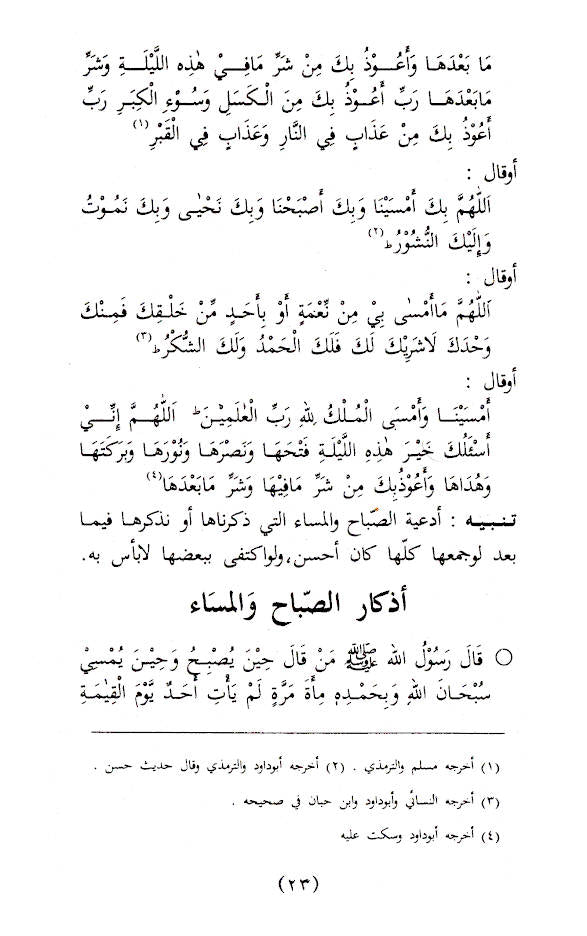 مَا بَعْدَهَا وَأَعُوْذُ بِكَ مِنْ شَرِّ مَافِيْ هٰذِهِ اللَّيْلَةِ وَشَرِّ
مَابَعْدَهَا رَبِّ أَعُوْذُ بِكَ مِنَ الْكَسَلِ وَسُوْءِ الْكِبَرِ رَبِّ
أَعُوْذُ بِكَ مِنْ عَذَابٍ فِي النَّارِ وَعَذَابٍ فِي الْقَبْرِ(١)
أوقال :
اَللّٰهُمَّ بِكَ أَمْسَيْنَا وَبِكَ أَصْبَحْنَا وَبِكَ نَحْيٰى وَبِكَ نَمُوْتُ
وَإِلَيْكَ النُّشُوْرُ ط(٢)
أوقال :
اَللّٰهُمَّ مَاأَمْسٰى بِيْ مِنْ نِّعْمَةٍ أَوْ بِأَحَدٍ مِّنْ خَلْقِكَ فَمِنْكَ
وَحْدَكَ لَاشَرِيْكَ لَكَ فَلَكَ الْحَمْدُ وَلَكَ الشُّكْرُ ط(٣)
أوقال :
أَمْسَيْنَا وَأَمْسَى الْمُلْكُ لِلّٰهِ رَبِّ الْعٰلَمِيْنَ ط اَللّٰهُمَّ إِنِّيْ
أَسْئَلُكَ خَيْرَ هٰذِهِ اللَّيْلَةِ فَتْحَهَا وَنَصْرَهَا وَنُوْرَهَا وَبَرَكَتَهَا
وَهُدَاهَا وَأَعُوْذُبِكَ مِنْ شَرِّ مَافِيْهَا وَشَرِّ مَابَعْدَهَا(٤)
تنبيه : أدعية الصّباح والمساء التي ذكرناها أو نذكرها فيما
بعد لوجمعها كلّها كان أحسن،ولواكتفى ببعضها لابأس به.
أذكار الصّباح وَالمسَاء
○ قَالَ رَسُوْلُ الله ﷺ مَنْ قَالَ حِيْنَ يُصْبِحُ وَحِيْنَ يُمْسِيْ
سُبْحَانَ اللهِ وَبِحَمْدِهِ مِأَةَ مَرَّةٍ لَمْ يَأْتِ أَحَدٌ يَّوْمَ الْقِيٰمَةِ
(١) أخرجه مسلم والترمذي . (٢) أخرجه أبوداود والترمذي وقال حديث حسن .
(٣) أخرجه النسائي وأبوداود وابن حبان في صحيحه .
(٤) أخرجه أبوداود وسكت عليه
(٢٣)